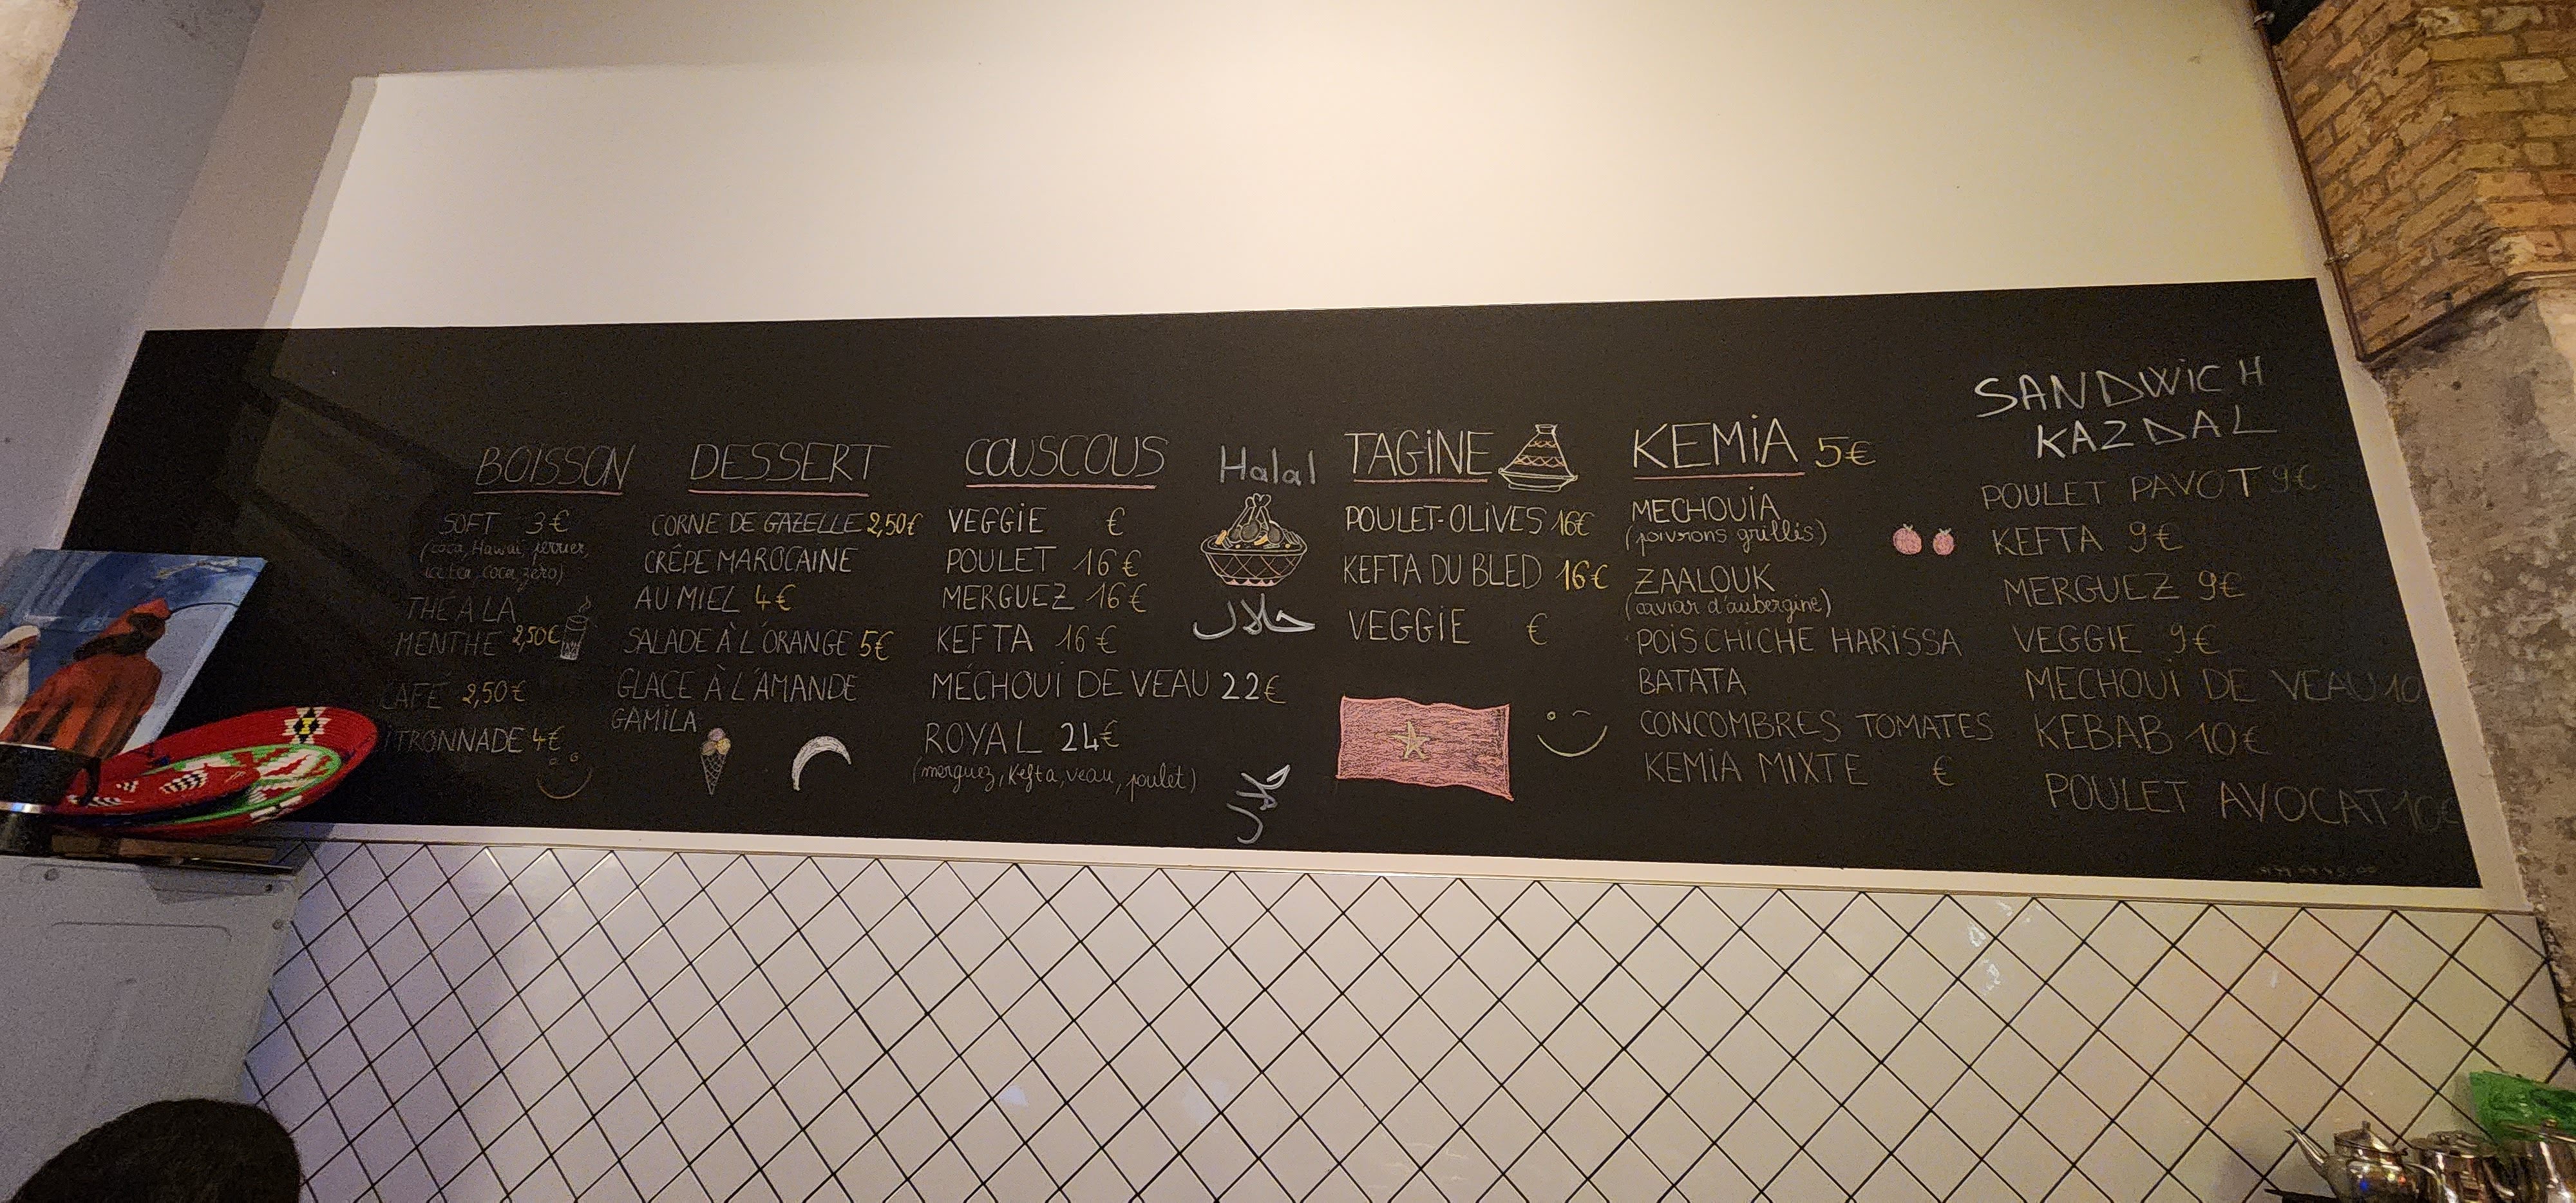 BOISSON
SOFT 3€
(coca, Hawai, perrier,
ice tea, coca zero)
THÉ A LA
MENTHE 2,50€
CAFÉ 2,50€
ITRONNADE 4€
DESSERT
CORNE DE GAZELLE 2,50€
CRÊPE MAROCAINE
AU MIEL 4€
SALADE À L'ORANGE 5€
GLACE À L'AMANDE
GAMILA
COUSCOUS
VEGGIE €
POULET 16€
MERGUEZ 16€
KEFTA 16€
MÉCHOUI DE VEAU 22€
ROYAL 24€
(merguez, Kefta, veau, poulet)
Halal
حلال
TAGINE
POULET-OLIVES 16€
KEFTA DU BLED 16€
VEGGIE €
KEMIA 5€
MECHOUIA
(poivrons grillés)
ZAALOUK
(caviar d'aubergine)
POIS CHICHE HARISSA
BATATA
CONCOMBRES TOMATES
KEMIA MIXTE €
SANDWICH
KAZDAL
POULET PAVOT 9€
KEFTA 9€
MERGUEZ 9€
VEGGIE 9€
MECHOUI DE VEAU 10
KEBAB 10€
POULET AVOCAT 10€